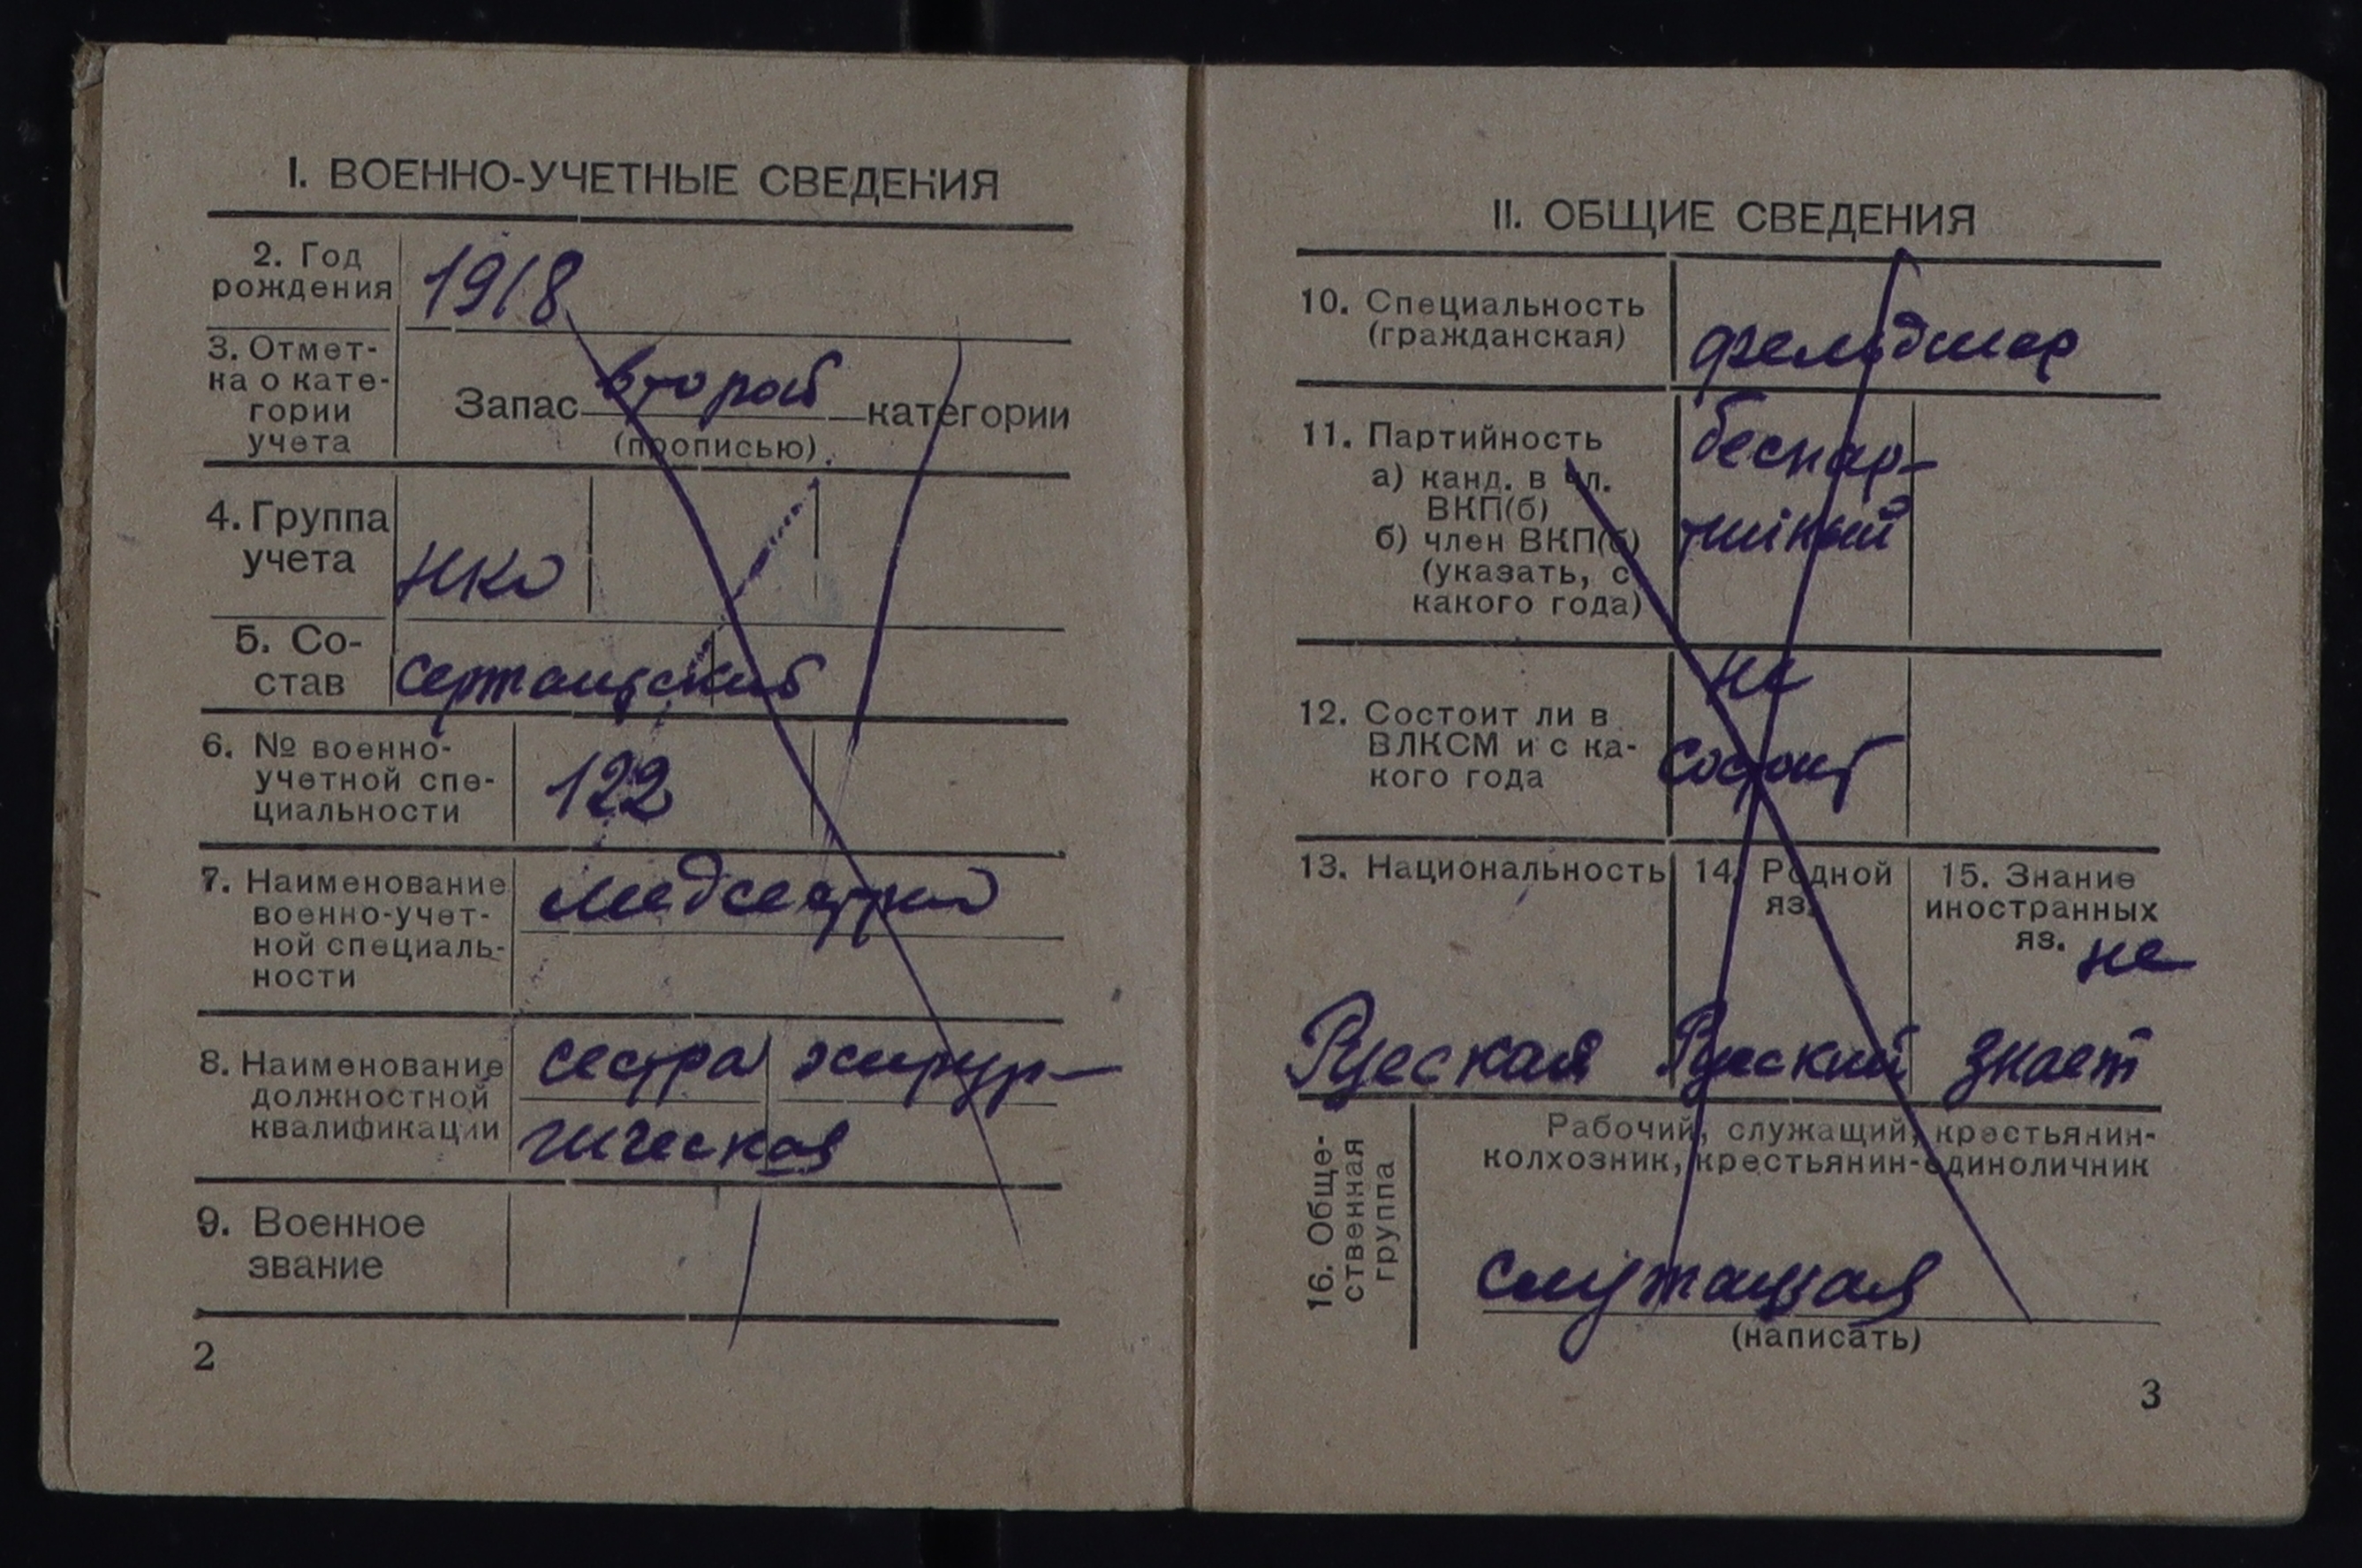 I. ВОЕННО-УЧЕТНЫЕ СВЕДЕНИЯ
2. Год
рождения
1918
3. Отмет-
ка о кате-
гории
учета
Запас второй категории
(прописью)
4. Группа
учета
НКО
5. Со-
став
сержанский
6. № военно-
учетной спе-
циальности
122
7. Наименование
военно-учет-
ной специаль-
ности
медсестра
8. Наименование
должностной
квалификации
сестра хирур-
гическая
9. Военное
звание
2
II. ОБЩИЕ СВЕДЕНИЯ
10. Специальность
(гражданская)
фельдшер
11. Партийность
а) канд. в чл.
ВКП(б)
б) член ВКП(б)
(указать, с
какого года)
беспар-
тийный
12. Состоит ли в
ВЛКСМ и с ка-
кого года
не
состоит
13. Национальность
Руеская
14. Родной
яз.
Руский
15. Знание
иностранных
яз. не
знает
16. Обще-
ственная
группа
Рабочий, служащий, крестьянин-
колхозник, крестьянин-единоличник
служащая
(написать)
3